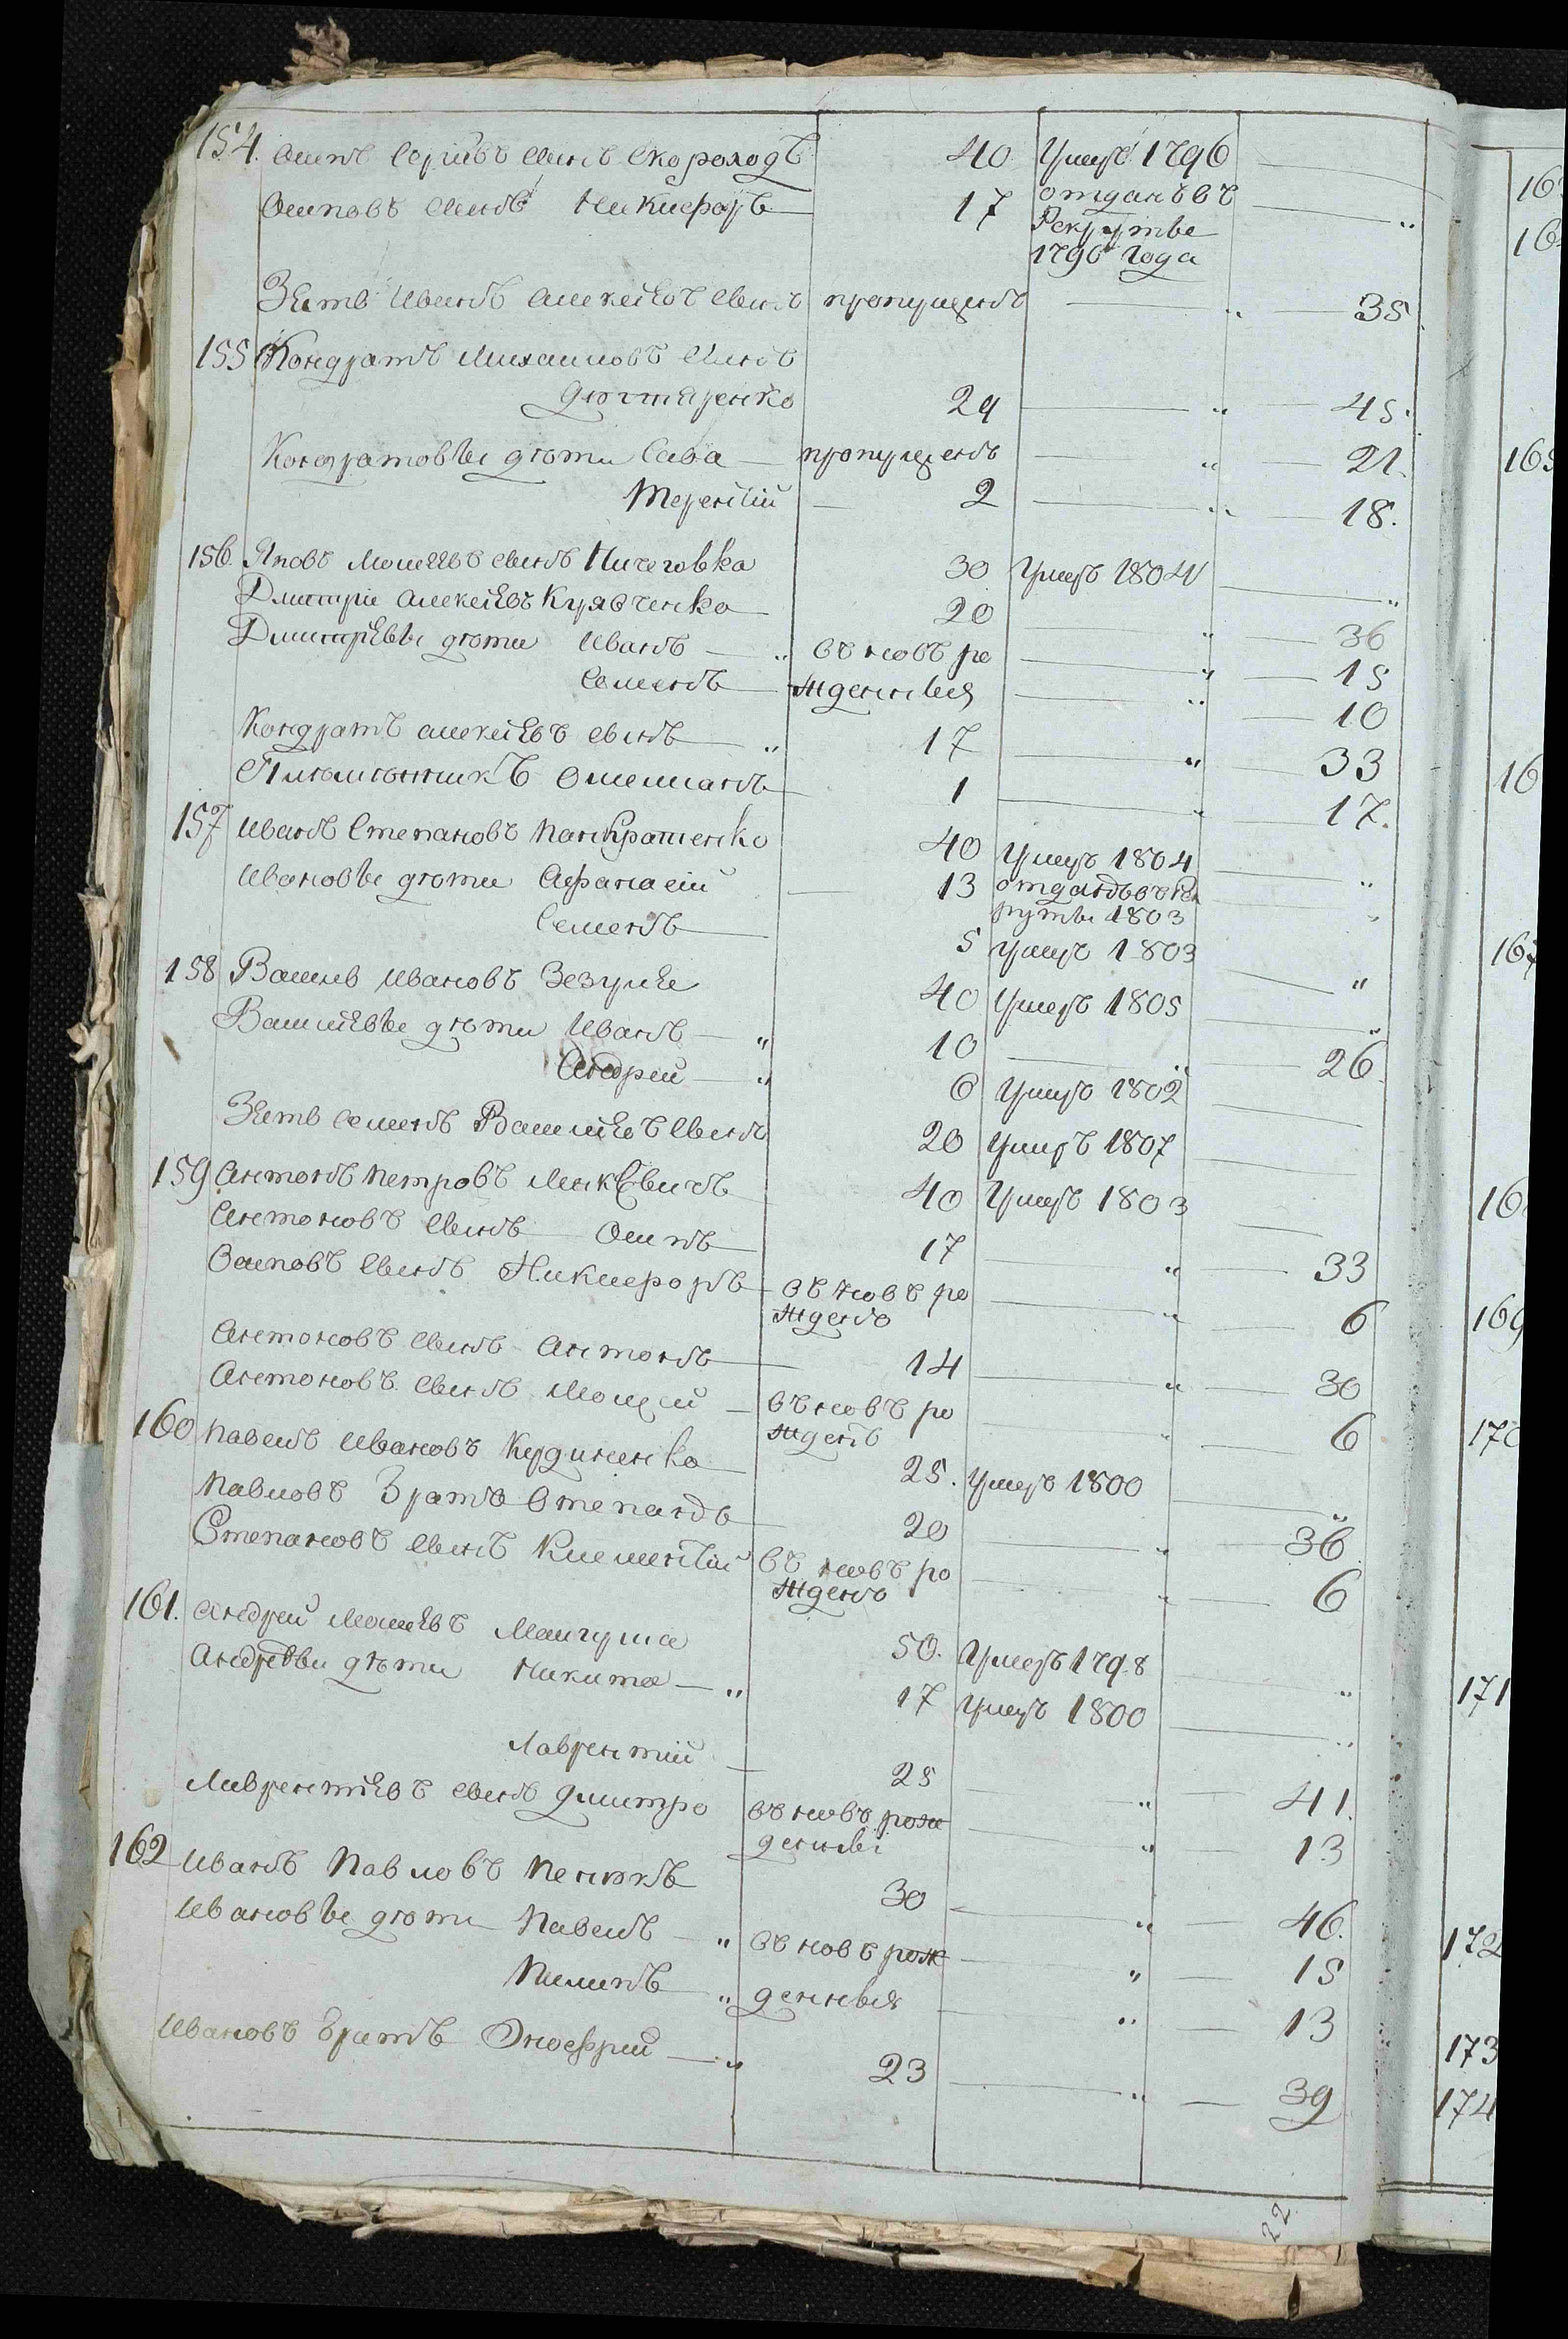 154. Осипъ Сергіивъ сынъ Скороходъ 40 Умеръ 1796
Осиповъ сынъ Никифоръ 17 отданъ въ
Рекруты
1796 Года
Зять Иванъ Алексіевъ сынъ пропущенъ " 35.
155 Кондратъ Михаиловъ сынъ
Дютяренко 29 " 45.
Кондратовы дѣти Сава пропущенъ " 21.
Терентій 2 " 18.
156. Яковъ Мосіевъ сынъ Ничеговка 30 Умеръ 1804 "
Дмитріи Алексіевъ Курявченко 20 " 36
Дмитріевы дѣти Иванъ " въ новъ ро " 15
Семенъ жденныя " 10
Кондратъ Алексіевъ сынъ " 17 " 33
Племянникъ Омелианъ 1 " 17.
157 Иванъ Степановъ Панкратенко 40 Умеръ 1804 "
Ивановы дѣти Афанасій 13 отданъ въ Рек "
руты 1803
Семенъ 5 Умеръ 1803 "
158 Василь Ивановъ Зезуля 40 Умеръ 1805 "
Василіевы дѣти Иванъ " 10 " 26.
Андрей " 6 Умеръ 1802
Зять Семенъ Василіевъ сынъ 20 Умеръ 1807
159 Антонъ Петровъ 40 Умеръ 1803
Антоновъ сынъ Осипъ 17 " 33
Осиповъ сынъ Никифоръ въ новъ ро " 6
жденъ
Антоновъ сынъ Антонъ 14 " 30
Антоновъ сынъ Моисей въ новъ ро " 6
жденъ
160 Павелъ Ивановъ Кудиненко 25. Умеръ 1800 "
Павловъ Братъ Степанъ 20 " 36.
Степановъ сынъ Климентій въ новъ ро " 6
жденъ
161. Андрей Мосіевъ Мангуша 50. Умеръ 1798 "
Андреевы дѣти Никита " 17 Умеръ 1800 "
Лаврентій 25 " 41.
Лаврентіевъ сынъ Дмитро въ новъ рож " 13
денный
162 Иванъ Павловъ 30 " 46.
Ивановы дѣти Павелъ " въ новъ рож " 15
Пилипъ " денныя " 13
Ивановъ Братъ Онофрій " 23 " 39
22